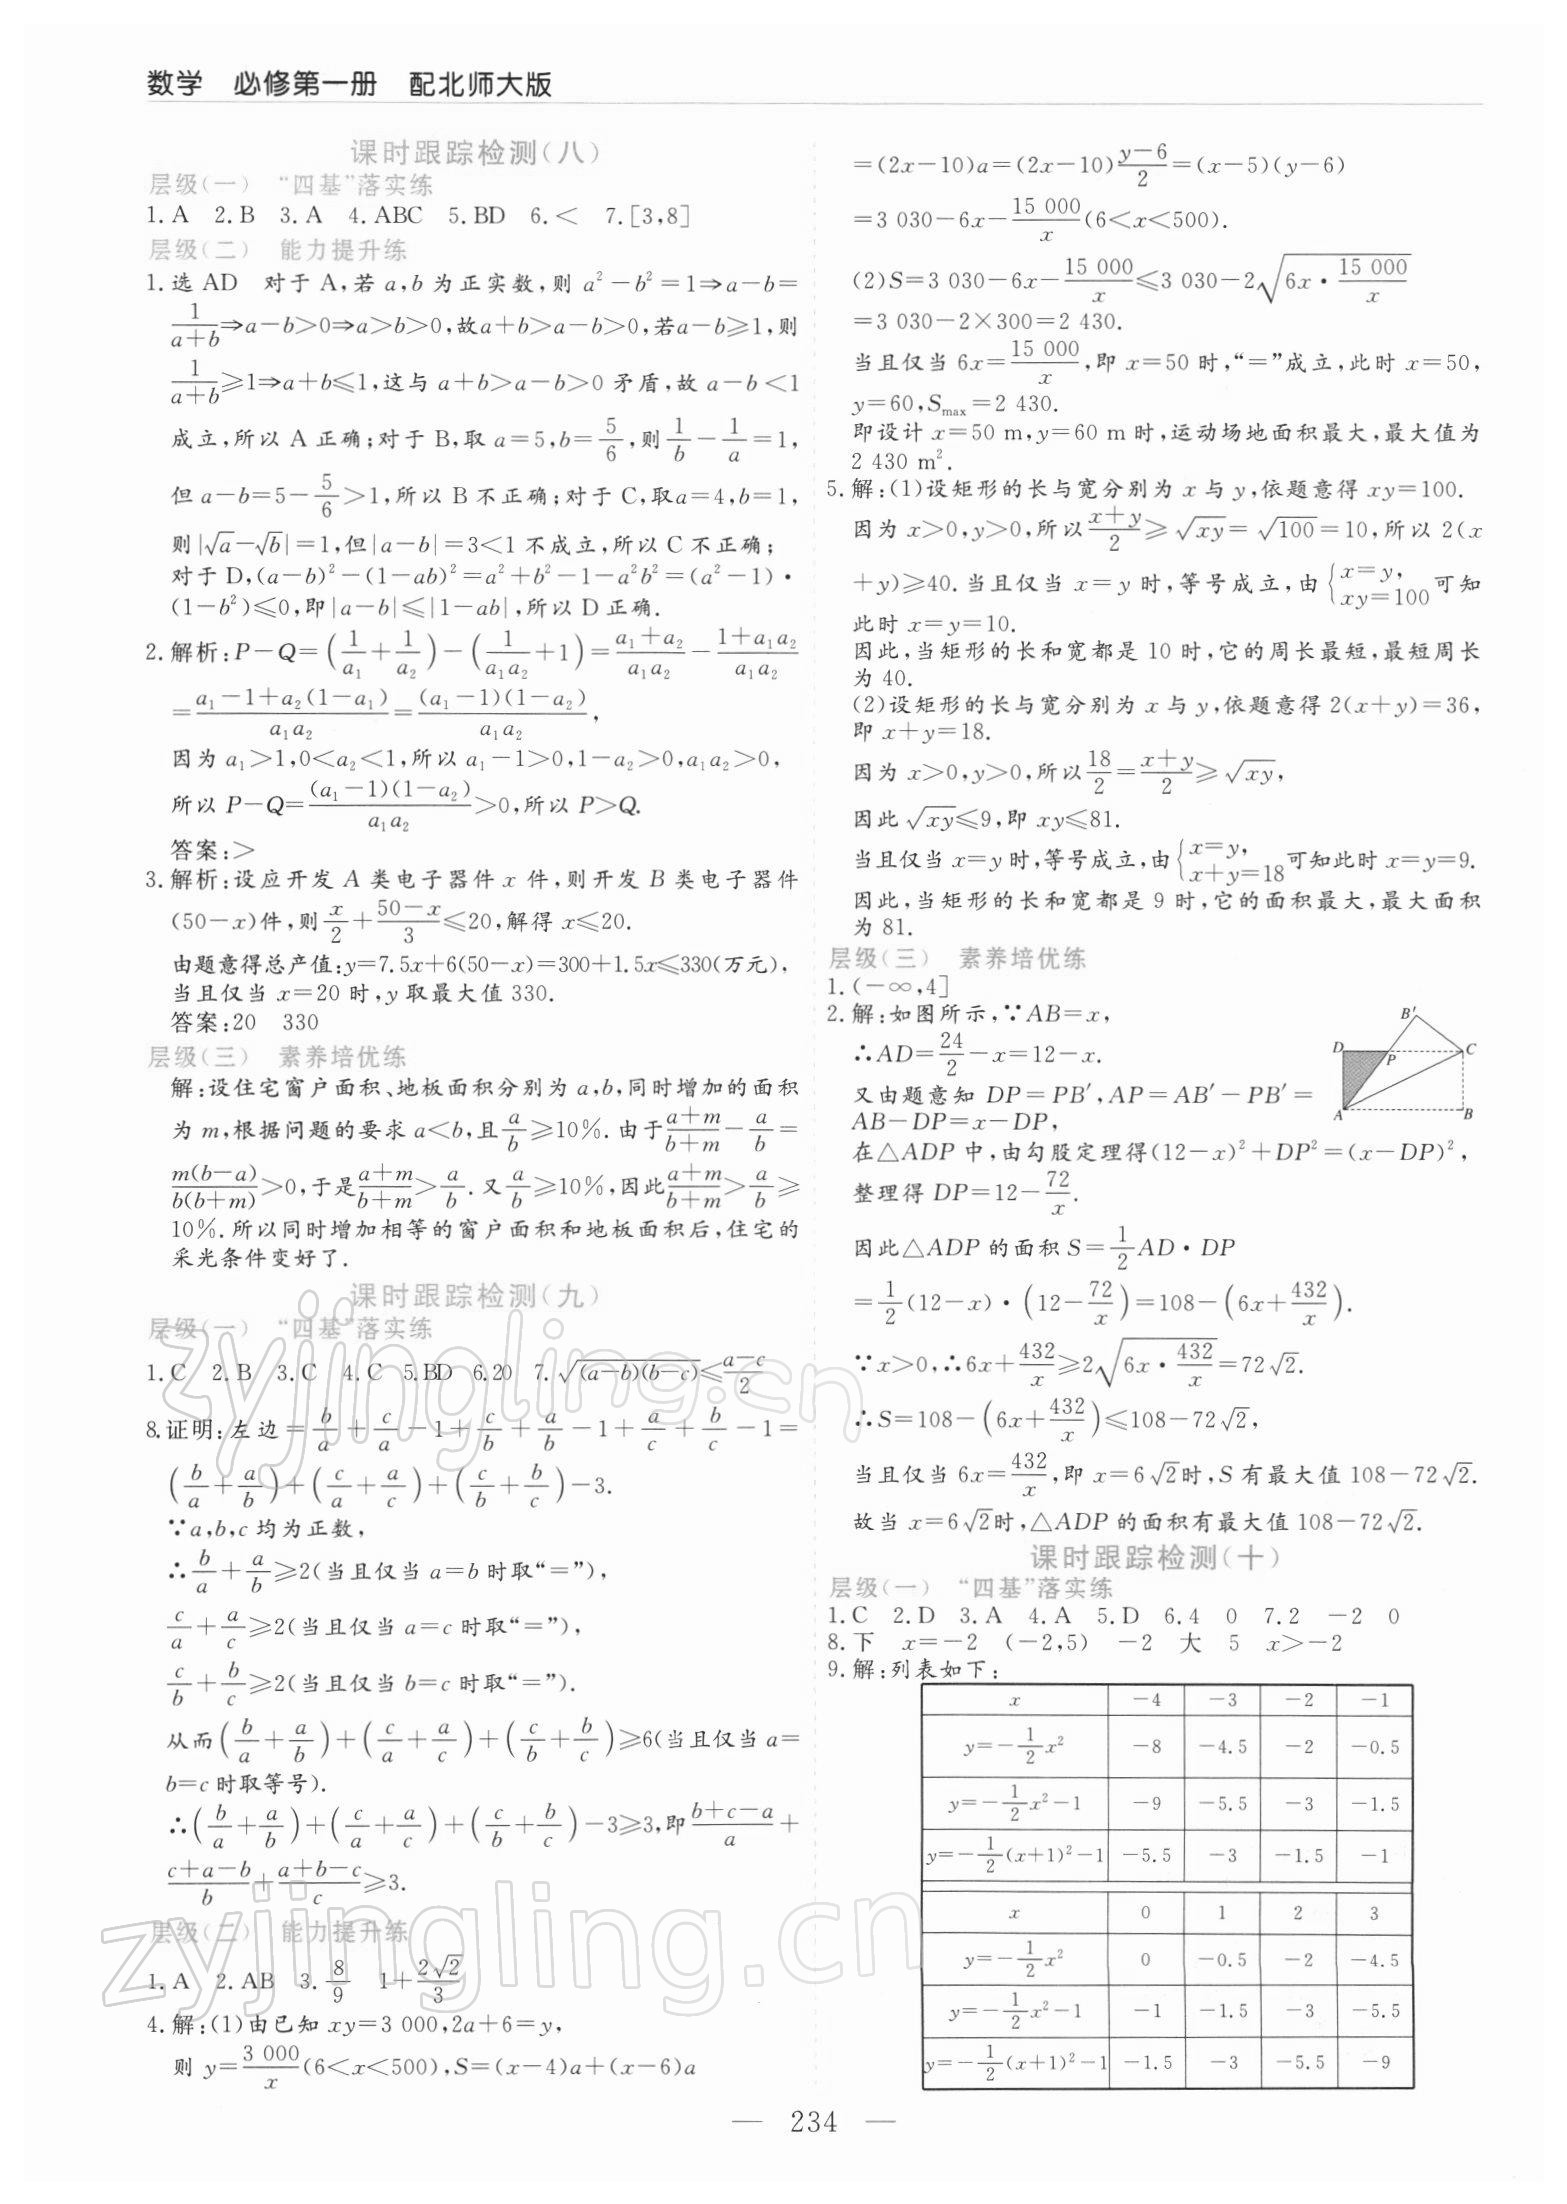 数学　必修第一册　配北师大版
课时跟踪检测(八)
层级(一)　“四基”落实练
1. A　2. B　3. A　4. ABC　5. BD　6. <　7. [3,8]
层级(二)　能力提升练
1. 选 AD　对于 A,若 a,b 为正实数,则 a²-b²=1⇒a-b=
1/(a+b)⇒a-b>0⇒a>b>0,故a+b>a-b>0,若a-b≥1,则
1/(a+b)≥1⇒a+b≤1,这与 a+b>a-b>0 矛盾,故 a-b<1
成立,所以 A 正确;对于 B,取 a=5,b=5/6,则1/b-1/a=1,
但 a-b=5-5/6>1,所以 B 不正确;对于 C,取a=4,b=1,
则|√a-√b|=1,但|a-b|=3<1 不成立,所以 C 不正确;
对于 D,(a-b)²-(1-ab)²=a²+b²-1-a²b²=(a²-1)·
(1-b²)≤0,即|a-b|≤|1-ab|,所以 D 正确.
2. 解析:P-Q=(1/a₁+1/a₂)-(1/(a₁a₂)+1)=(a₁+a₂)/(a₁a₂)-(1+a₁a₂)/(a₁a₂)
=(a₁-1+a₂(1-a₁))/(a₁a₂)=((a₁-1)(1-a₂))/(a₁a₂),
因为 a₁>1,0<a₂<1,所以 a₁-1>0,1-a₂>0,a₁a₂>0,
所以 P-Q=((a₁-1)(1-a₂))/(a₁a₂)>0,所以 P>Q.
答案:>
3. 解析:设应开发 A 类电子器件 x 件,则开发 B 类电子器件
(50-x)件,则x/2+(50-x)/3≤20,解得 x≤20.
由题意得总产值:y=7.5x+6(50-x)=300+1.5x≤330(万元),
当且仅当 x=20 时,y 取最大值 330.
答案:20　330
层级(三)　素养培优练
解:设住宅窗户面积、地板面积分别为 a,b,同时增加的面积
为 m,根据问题的要求 a<b,且a/b≥10%.由于(a+m)/(b+m)-a/b=
m(b-a)/(b(b+m))>0,于是(a+m)/(b+m)>a/b.又a/b≥10%,因此(a+m)/(b+m)>a/b≥
10%.所以同时增加相等的窗户面积和地板面积后,住宅的
采光条件变好了.
课时跟踪检测(九)
层级(一)　“四基”落实练
1. C　2. B　3. C　4. C　5. BD　6. 20　7. √((a-b)(b-c))≤(a-c)/2
8. 证明:左边=b/a+c/a-1+c/b+a/b-1+a/c+b/c-1=
(b/a+a/b)+(c/a+a/c)+(c/b+b/c)-3.
∵a,b,c 均为正数,
∴b/a+a/b≥2(当且仅当 a=b 时取“=”),
c/a+a/c≥2(当且仅当 a=c 时取“=”),
c/b+b/c≥2(当且仅当 b=c 时取“=”).
从而(b/a+a/b)+(c/a+a/c)+(c/b+b/c)≥6(当且仅当 a=
b=c 时取等号).
∴(b/a+a/b)+(c/a+a/c)+(c/b+b/c)-3≥3,即(b+c-a)/a+
(c+a-b)/b+(a+b-c)/c≥3.
层级(二)　能力提升练
1. A　2. AB　3. 8/9　1+2√2/3
4. 解:(1)由已知 xy=3 000,2a+6=y,
则 y=3 000/x(6<x<500),S=(x-4)a+(x-6)a
=(2x-10)a=(2x-10)(y-6)/2=(x-5)(y-6)
=3 030-6x-15 000/x(6<x<500).
(2)S=3 030-6x-15 000/x≤3 030-2√(6x·15 000/x)
=3 030-2×300=2 430.
当且仅当 6x=15 000/x,即 x=50 时,“=”成立,此时 x=50,
y=60,Smax=2 430.
即设计 x=50 m,y=60 m 时,运动场地面积最大,最大值为
2 430 m².
5. 解:(1)设矩形的长与宽分别为 x 与 y,依题意得 xy=100.
因为 x>0,y>0,所以(x+y)/2≥√xy=√100=10,所以 2(x
+y)≥40.当且仅当 x=y 时,等号成立,由{x=y, xy=100可知
此时 x=y=10.
因此,当矩形的长和宽都是 10 时,它的周长最短,最短周长
为 40.
(2)设矩形的长与宽分别为 x 与 y,依题意得 2(x+y)=36,
即 x+y=18.
因为 x>0,y>0,所以18/2=(x+y)/2≥√xy,
因此√xy≤9,即 xy≤81.
当且仅当 x=y 时,等号成立,由{x=y, x+y=18可知此时 x=y=9.
因此,当矩形的长和宽都是 9 时,它的面积最大,最大面积
为 81.
层级(三)　素养培优练
1. (-∞,4]
2. 解:如图所示,∵AB=x,
∴AD=24/2-x=12-x.
又由题意知 DP=PB′,AP=AB′-PB′=
AB-DP=x-DP,
B′
D
P
C
A
B
在△ADP 中,由勾股定理得(12-x)²+DP²=(x-DP)²,
整理得 DP=12-72/x.
因此△ADP 的面积 S=1/2AD·DP
=1/2(12-x)·(12-72/x)=108-(6x+432/x).
∵x>0,∴6x+432/x≥2√(6x·432/x)=72√2.
∴S=108-(6x+432/x)≤108-72√2,
当且仅当 6x=432/x,即 x=6√2时,S 有最大值 108-72√2.
故当 x=6√2时,△ADP 的面积有最大值 108-72√2.
课时跟踪检测(十)
层级(一)　“四基”落实练
1. C　2. D　3. A　4. A　5. D　6. 4　0　7. 2　-2　0
8. 下　x=-2　(-2,5)　-2　大　5　x>-2
9. 解:列表如下:
x　-4　-3　-2　-1
y=-1/2x²　-8　-4.5　-2　-0.5
y=-1/2x²-1　-9　-5.5　-3　-1.5
y=-1/2(x+1)²-1　-5.5　-3　-1.5　-1
x　0　1　2　3
y=-1/2x²　0　-0.5　-2　-4.5
y=-1/2x²-1　-1　-1.5　-3　-5.5
y=-1/2(x+1)²-1　-1.5　-3　-5.5　-9
— 234 —
zyjingling.cn
zyjingling.cn